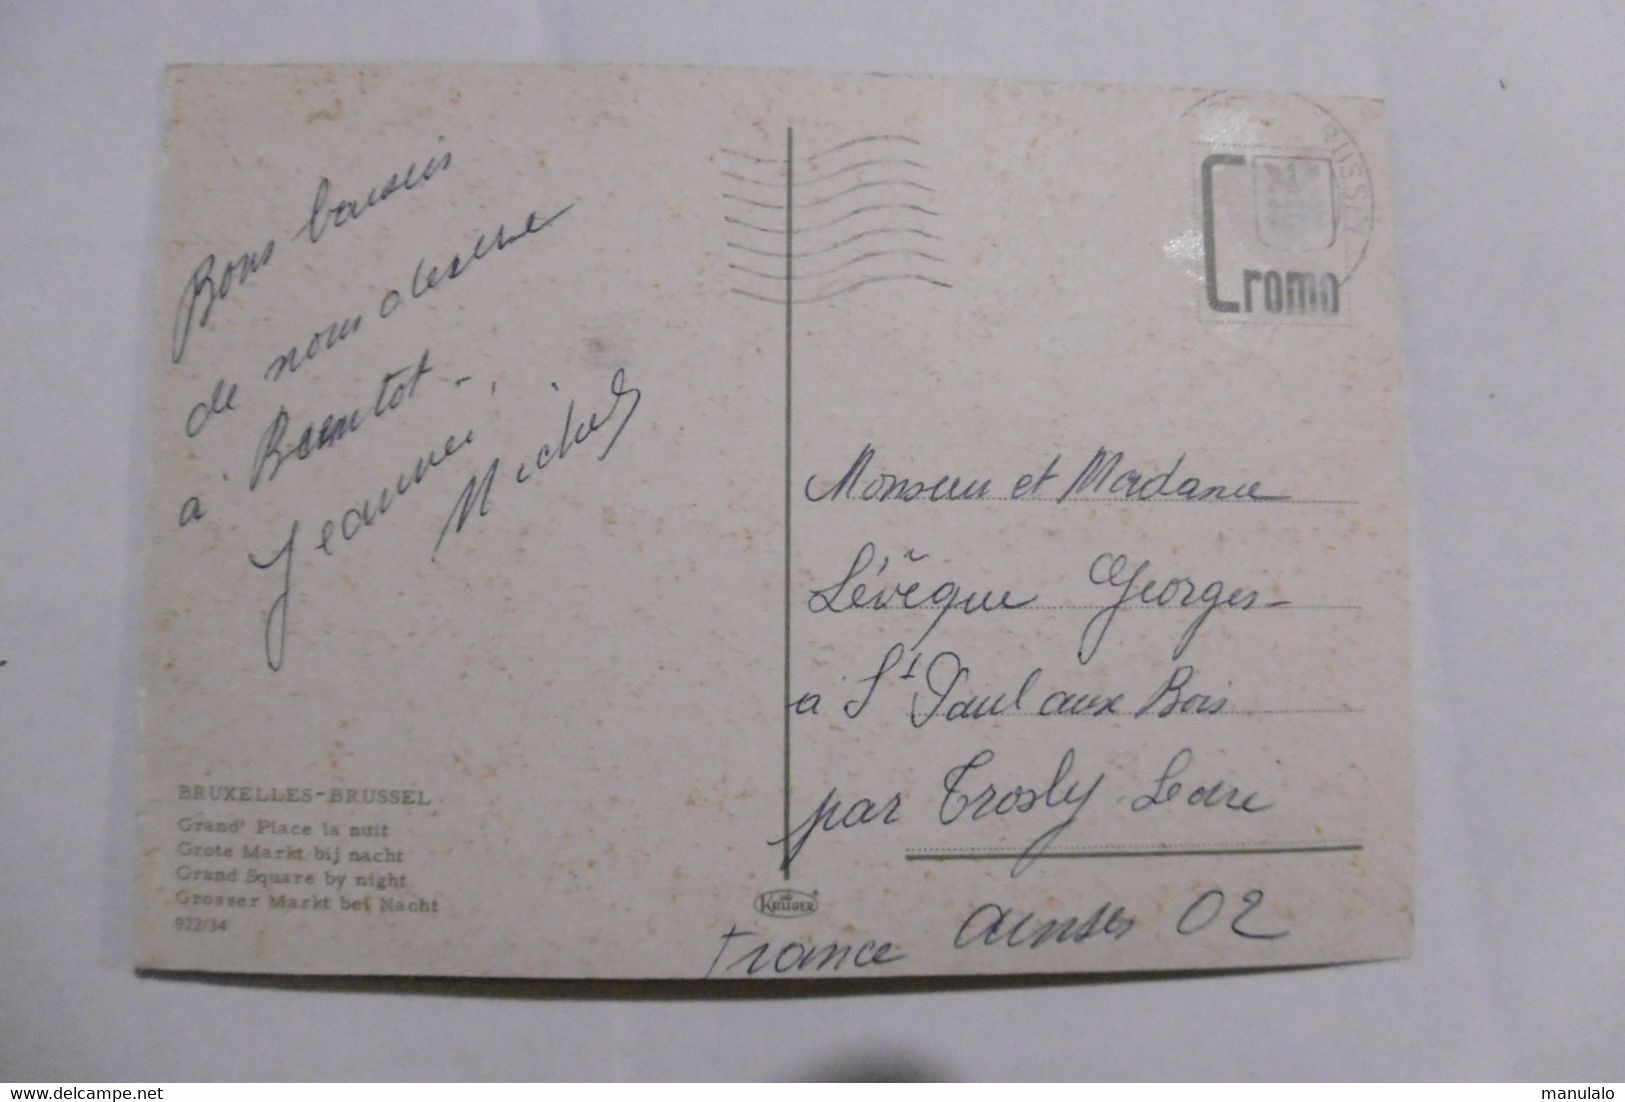 Bons baisers
de nous deux
à Bientot -
Jeannine,
Michel
BRUXELLES-BRUSSEL
Grand' Place la nuit
Grote Markt bij nacht
Grand Square by night
Grosser Markt bei Nacht
922/34
KRÜGER
BRUSSEL
Cromo
Monsieur et Madame
Lévêque Georges -
à St Paul aux Bois
par Trosly Loire
Aisnes 02
France
www.delcampe.net
manulalo